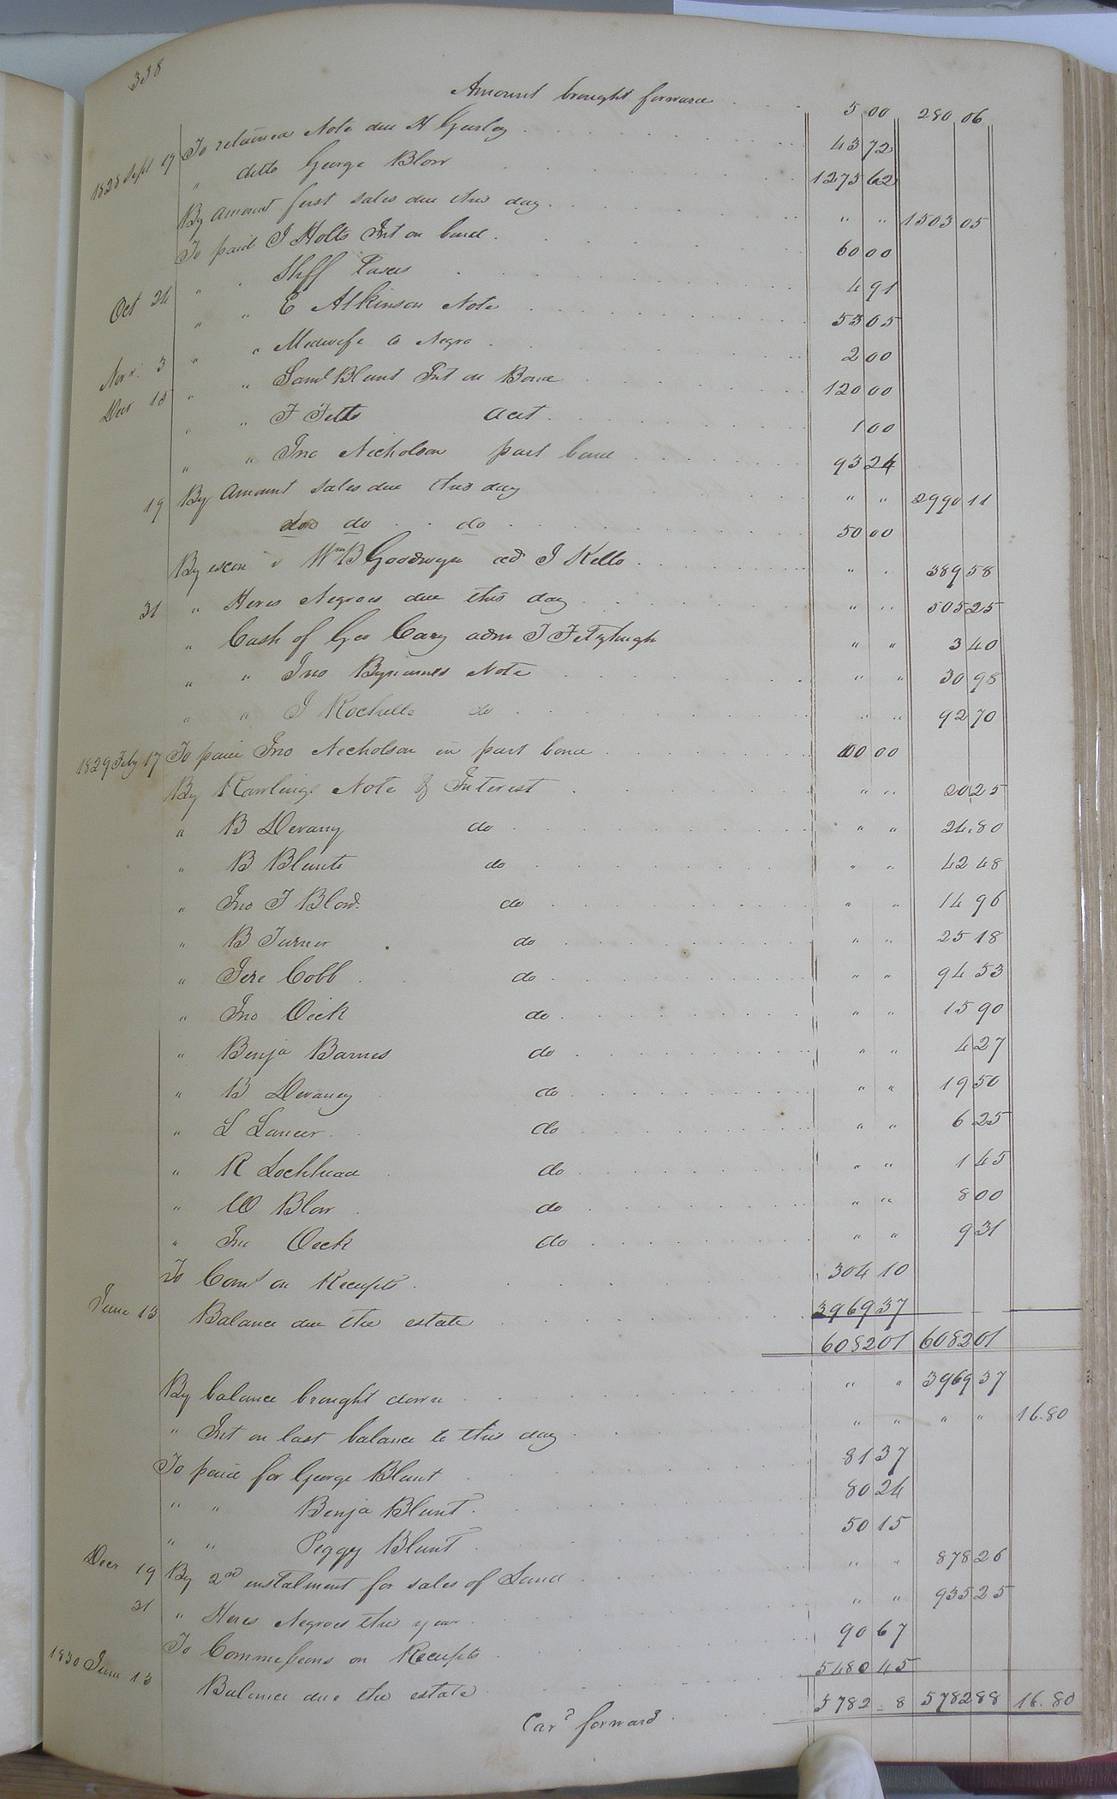 338
Amount brought forward 5 00 280 06
1828 Sept 19 To returned Note due H Gurley 43 72
" ditto George Blow 1275 62
By amount first sales due this day " " 1503 05
To paid J Holts Int on bond 60 00
Oct 24 " " Shff Taxes 4 91
" " E Atkinson Note 53 05
Nov 3 " " Midwife to Negro 2 00
Dec 15 " " Saml Blunt Int on Bond 120 00
" " F Fitts acct 1 00
" " Jno Nicholson part bond 93 24
19 By Amount sales due this day " " 2990 11
do do do 50 00
By excon v Wm B Goodwyn ad J Kello " " 389 58
31 " Hires Negroes due this day " " 505 25
" Cash of Geo Cary adm T Fitzhugh " " 3 40
" " Jno Bynumes Note " " 30 98
" " J Rochelle do " " 92 70
1829 Feby 17 To paid Jno Nicholson in part bond 100 00
By Rawlings Note & Interest " " 20 25
" B Devany do " " 24.80
" B Blunts do " " 42 48
" Jno T Blow do " " 14 96
" B Turner do " " 25 18
" Jere Cobb do " " 94 53
" Jno Dick do " " 15 90
" Benja Barnes do " " 4 27
" B Devaney do " " 19 50
" L Lanier do " " 6 25
" R Lochhead do " " 1 45
" W Blow do " " 8 00
" Jno Dick do " " 9 31
To Coms on Receipts 304 10
June 13 Balance due the estate 3969 37
6082 01 6082 01
By balance brought down " " 3969 37
" Int on last balance to this day " " " " 16.80
To paid for George Blunt 81 37
" " Benja Blunt 80 24
" " Peggy Blunt 50 15
Decr 19 By 2nd instalment for sales of Land " " 878 26
31 " Hires Negroes this year " " 935 25
To Commissions on Receipts 90 67
1830 June 13 Balance due the estate 5480 45
5782 . 8 5782 88 16.80
Card forward